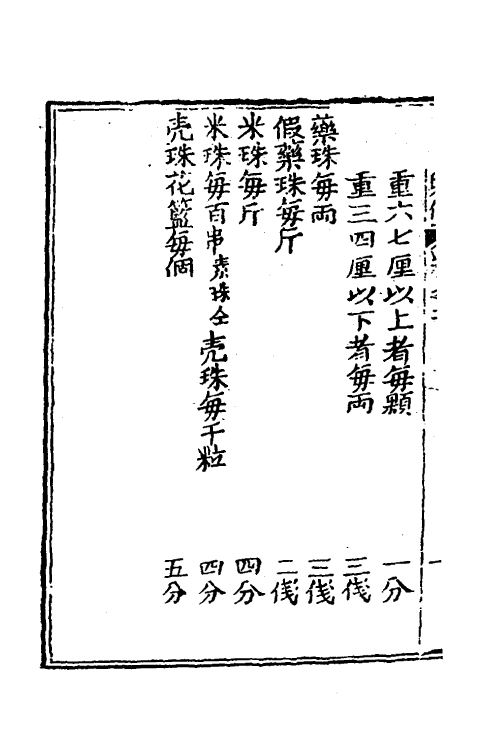 重六七厘以上者每顆 一分
重三四厘以下者每両 三伐
藥珠每両 三伐
假藥珠每斤 二伐
米珠每斤 四分
米珠每百串素珠仝壳珠每千粒 四分
壳珠花籃每個 五分